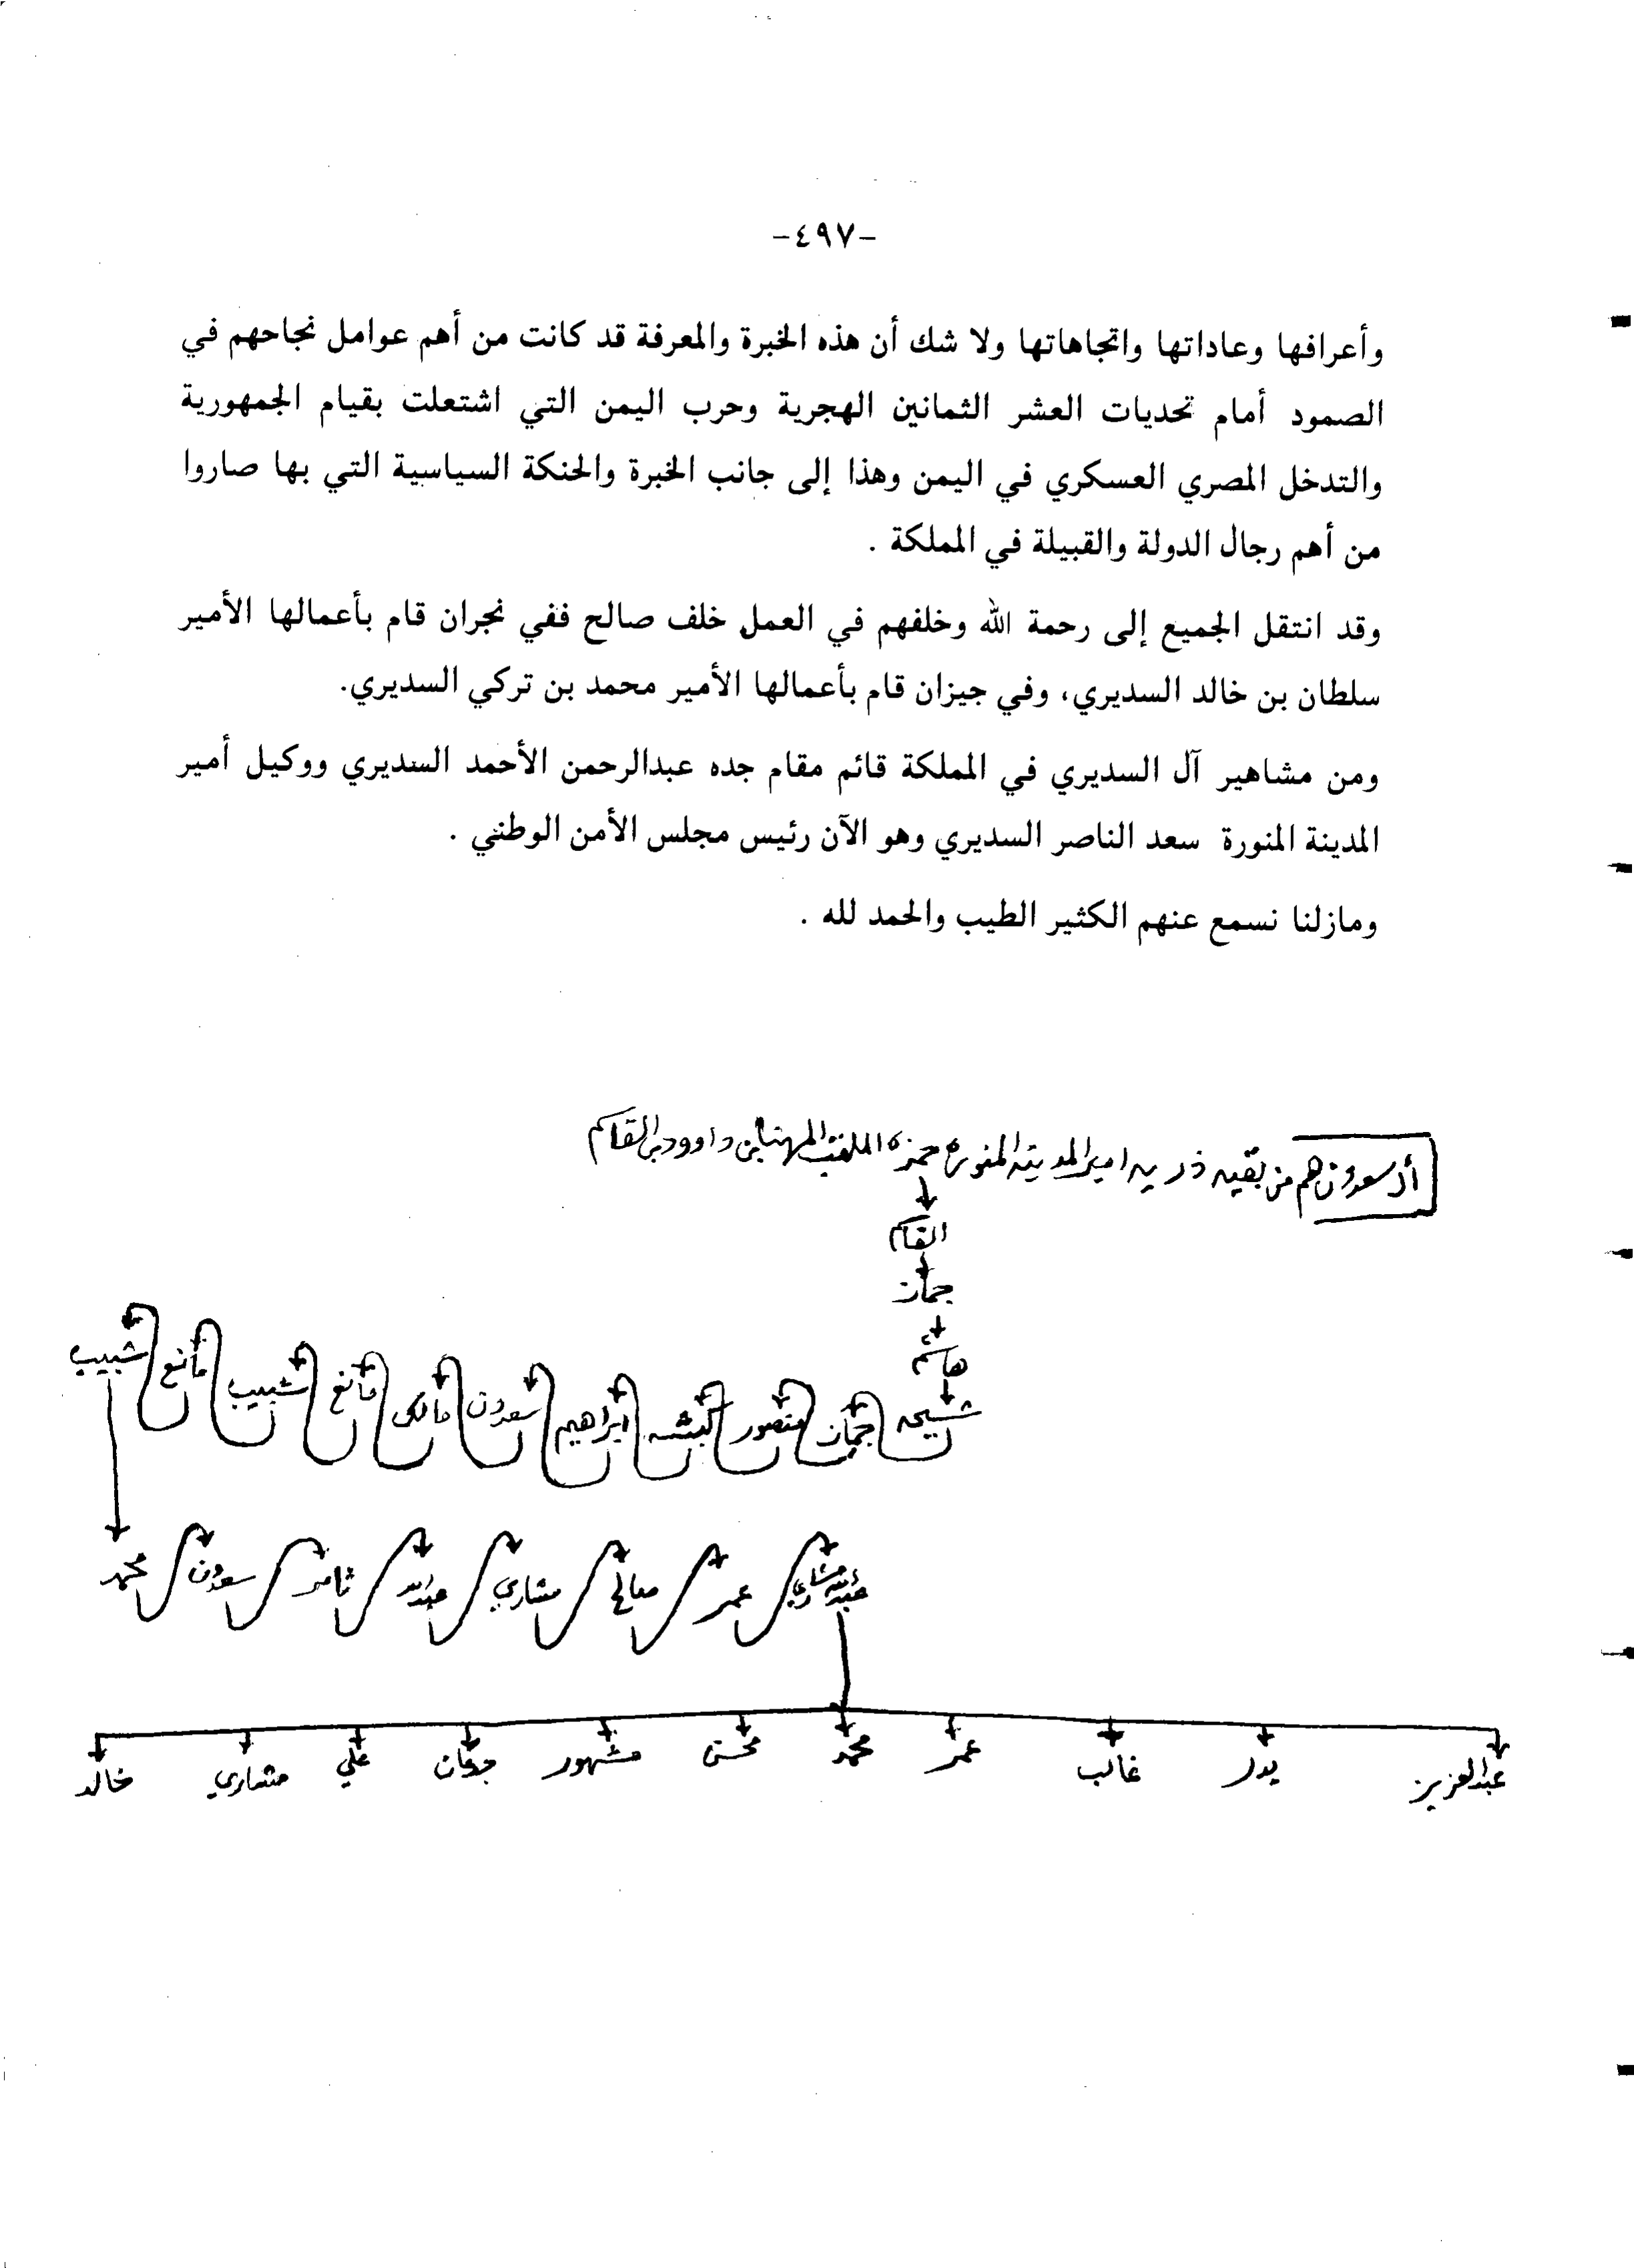 -٤٩٧-
وأعرافها وعاداتها واتجاهاتها ولا شك أن هذه الخبرة والمعرفة قد كانت من أهم عوامل نجاحهم في
الصمود أمام تحديات العشر الثمانين الهجرية وحرب اليمن التي اشتعلت بقيام الجمهورية
والتدخل المصري العسكري في اليمن وهذا إلى جانب الخبرة والحنكة السياسية التي بها صاروا
من أهم رجال الدولة والقبيلة في المملكة .
وقد انتقل الجميع إلى رحمة الله وخلفهم في العمل خلف صالح ففي نجران قام بأعمالها الأمير
سلطان بن خالد السديري، وفي جيزان قام بأعمالها الأمير محمد بن تركي السديري.
ومن مشاهير آل السديري في المملكة قائم مقام جده عبدالرحمن الأحمد السديري ووكيل أمير
المدينة المنورة سعد الناصر السديري وهو الآن رئيس مجلس الأمن الوطني .
ومازلنا نسمع عنهم الكثير الطيب والحمد لله .
أل سعدون هم من بقيه ذريه امير المدينه المنوره حمزه الملقب المهنا بن داوود بن القاسم
القاسم
جماز
هاشم
شيحه جماز منصور كبشه ابراهيم سعدون مالك مانع شبيب مانع شبيب
عبدالله مشاري عمر صالح مشاري عبدالله ثامر سعدون محمد
عبدالعزيز بدر غالب عمر محمد محسن مشهور جدعان علي مشاري خالد